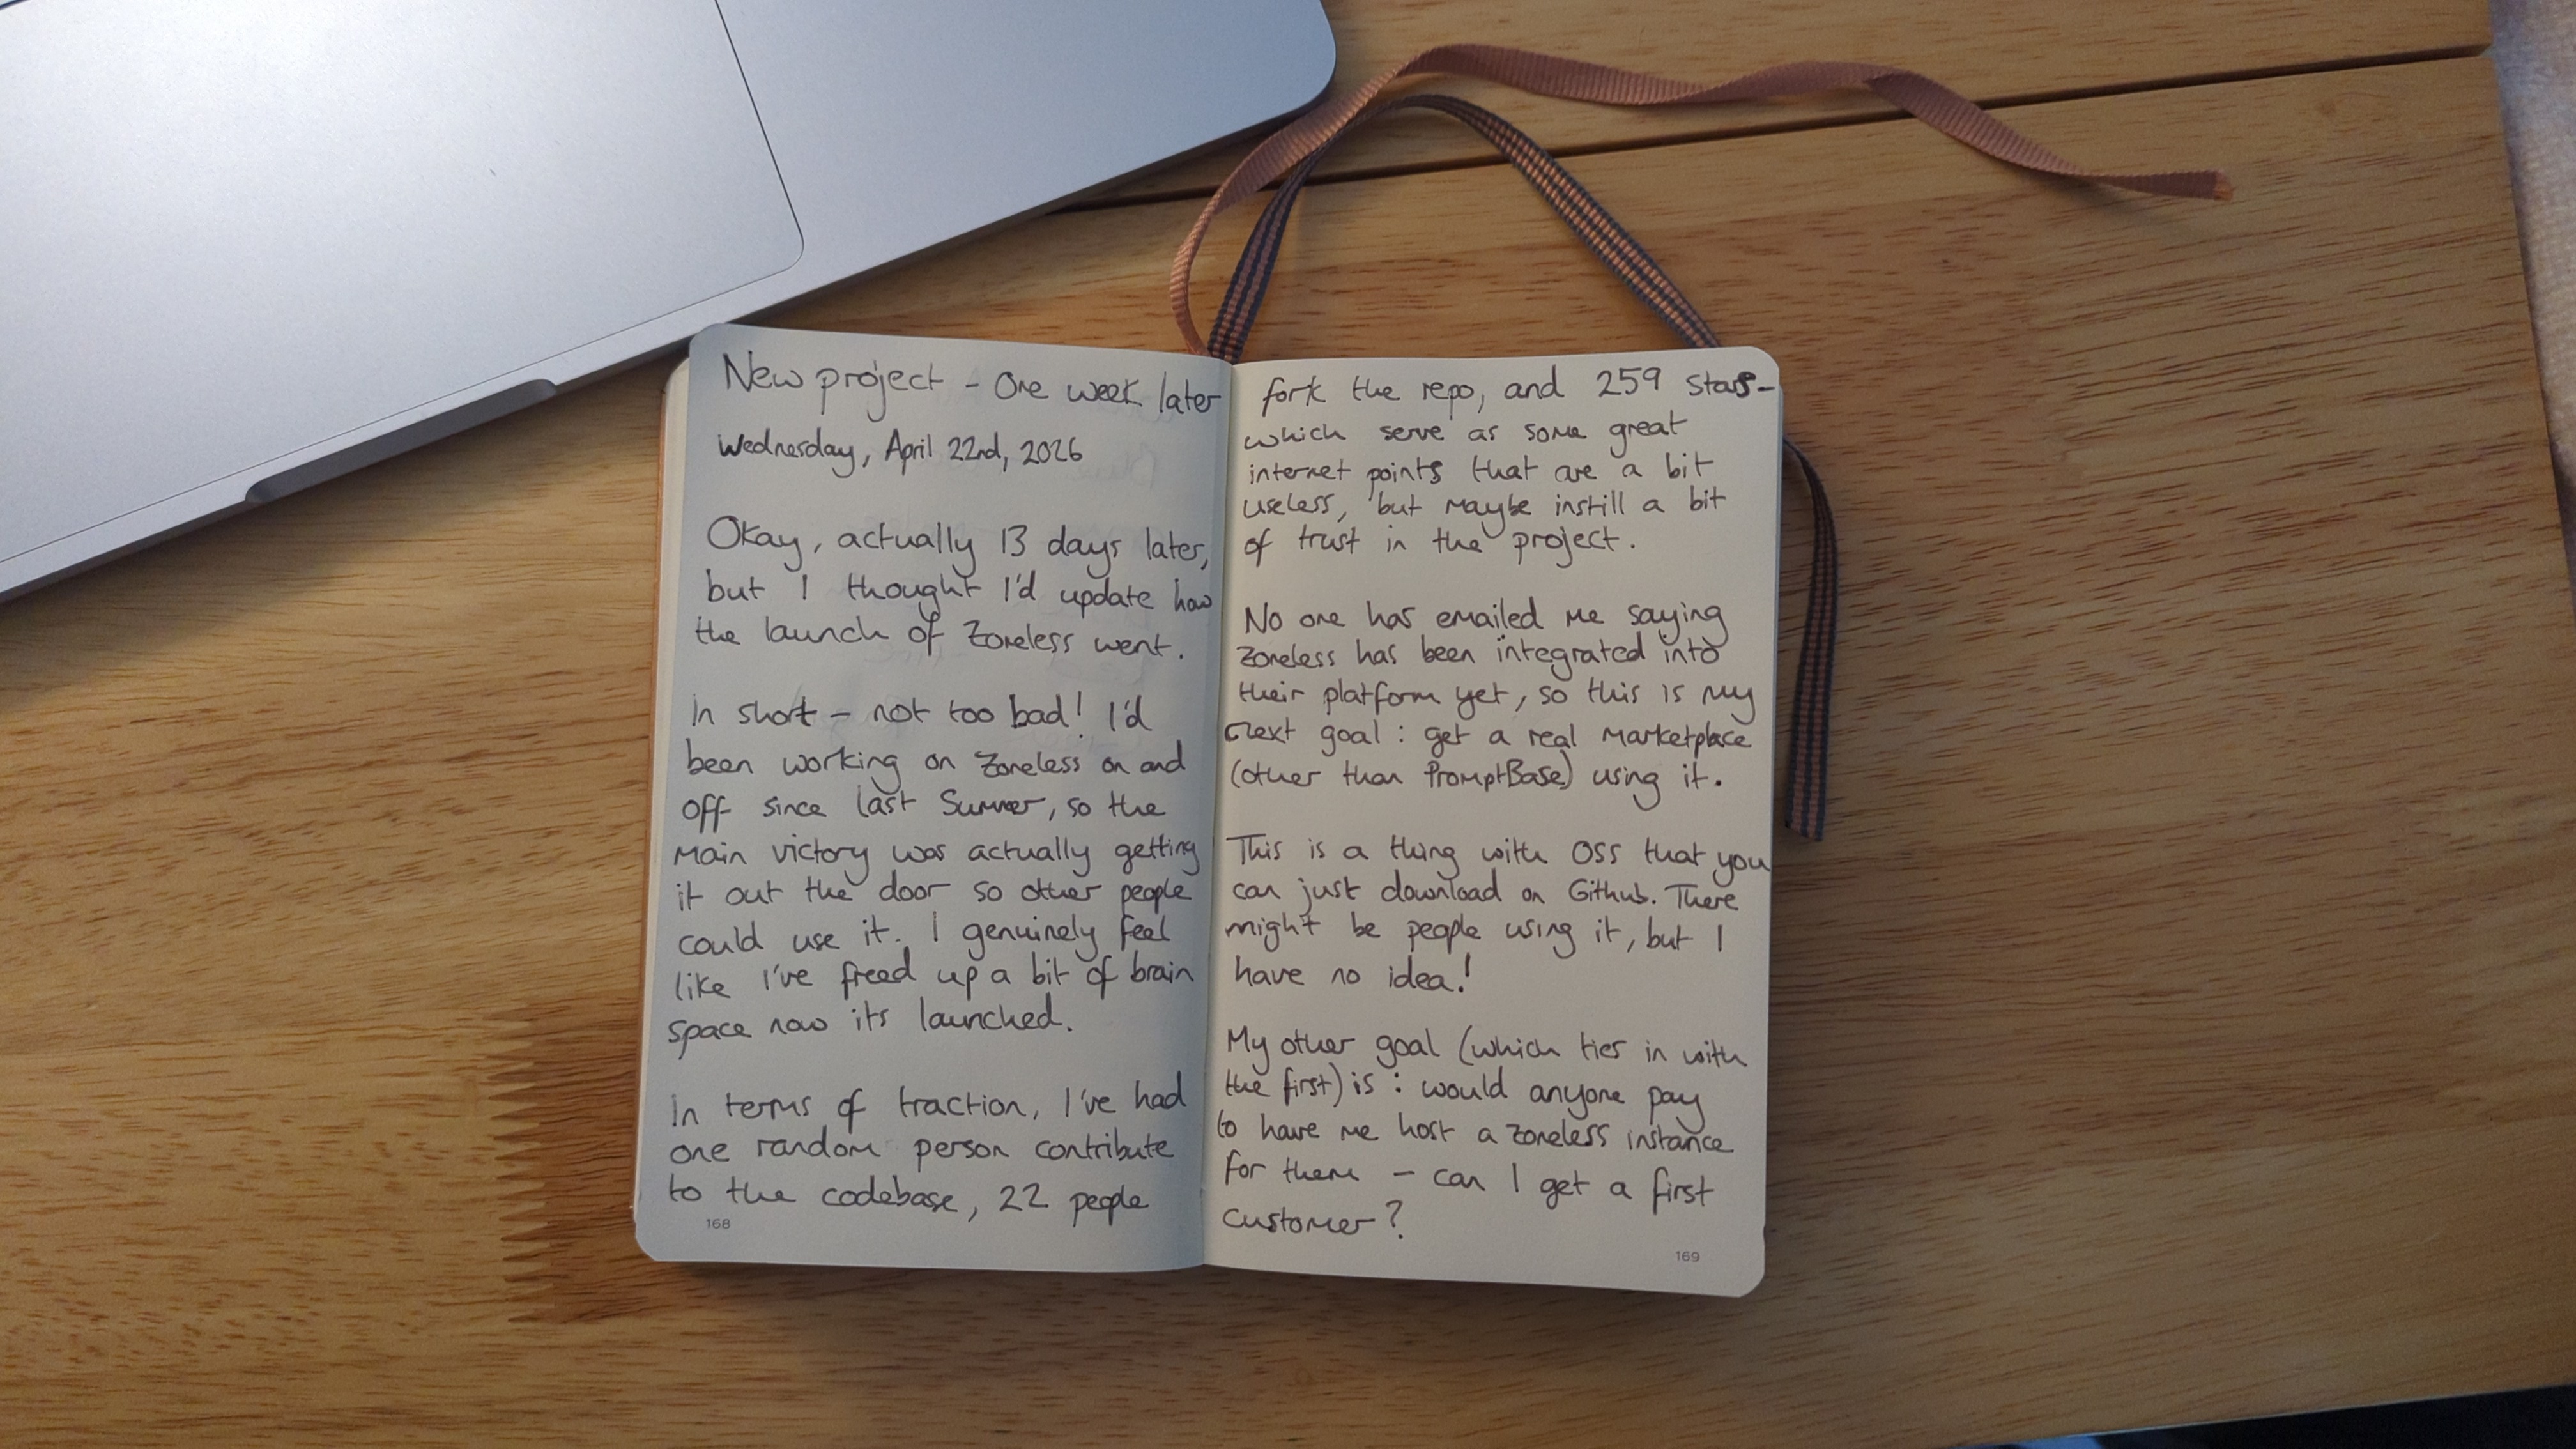 New project - One week later
Wednesday, April 22nd, 2026
Okay, actually 13 days later,
but I thought I'd update how
the launch of Zoneless went.
In short - not too bad! I'd
been working on Zoneless on and
off since last Summer, so the
main victory was actually getting
it out the door so other people
could use it. I genuinely feel
like I've freed up a bit of brain
space now its launched.
In terms of traction, I've had
one random person contribute
to the codebase, 22 people
168
fork the repo, and 259 stars-
which serve as some great
internet points that are a bit
useless, but maybe instill a bit
of trust in the project.
No one has emailed me saying
Zoneless has been integrated into
their platform yet, so this is my
next goal: get a real marketplace
(other than PromptBase) using it.
This is a thing with OSS that you
can just download on Github. There
might be people using it, but I
have no idea!
My other goal (which ties in with
the first) is: would anyone pay
to have me host a Zoneless instance
for them - can I get a first
customer?
169